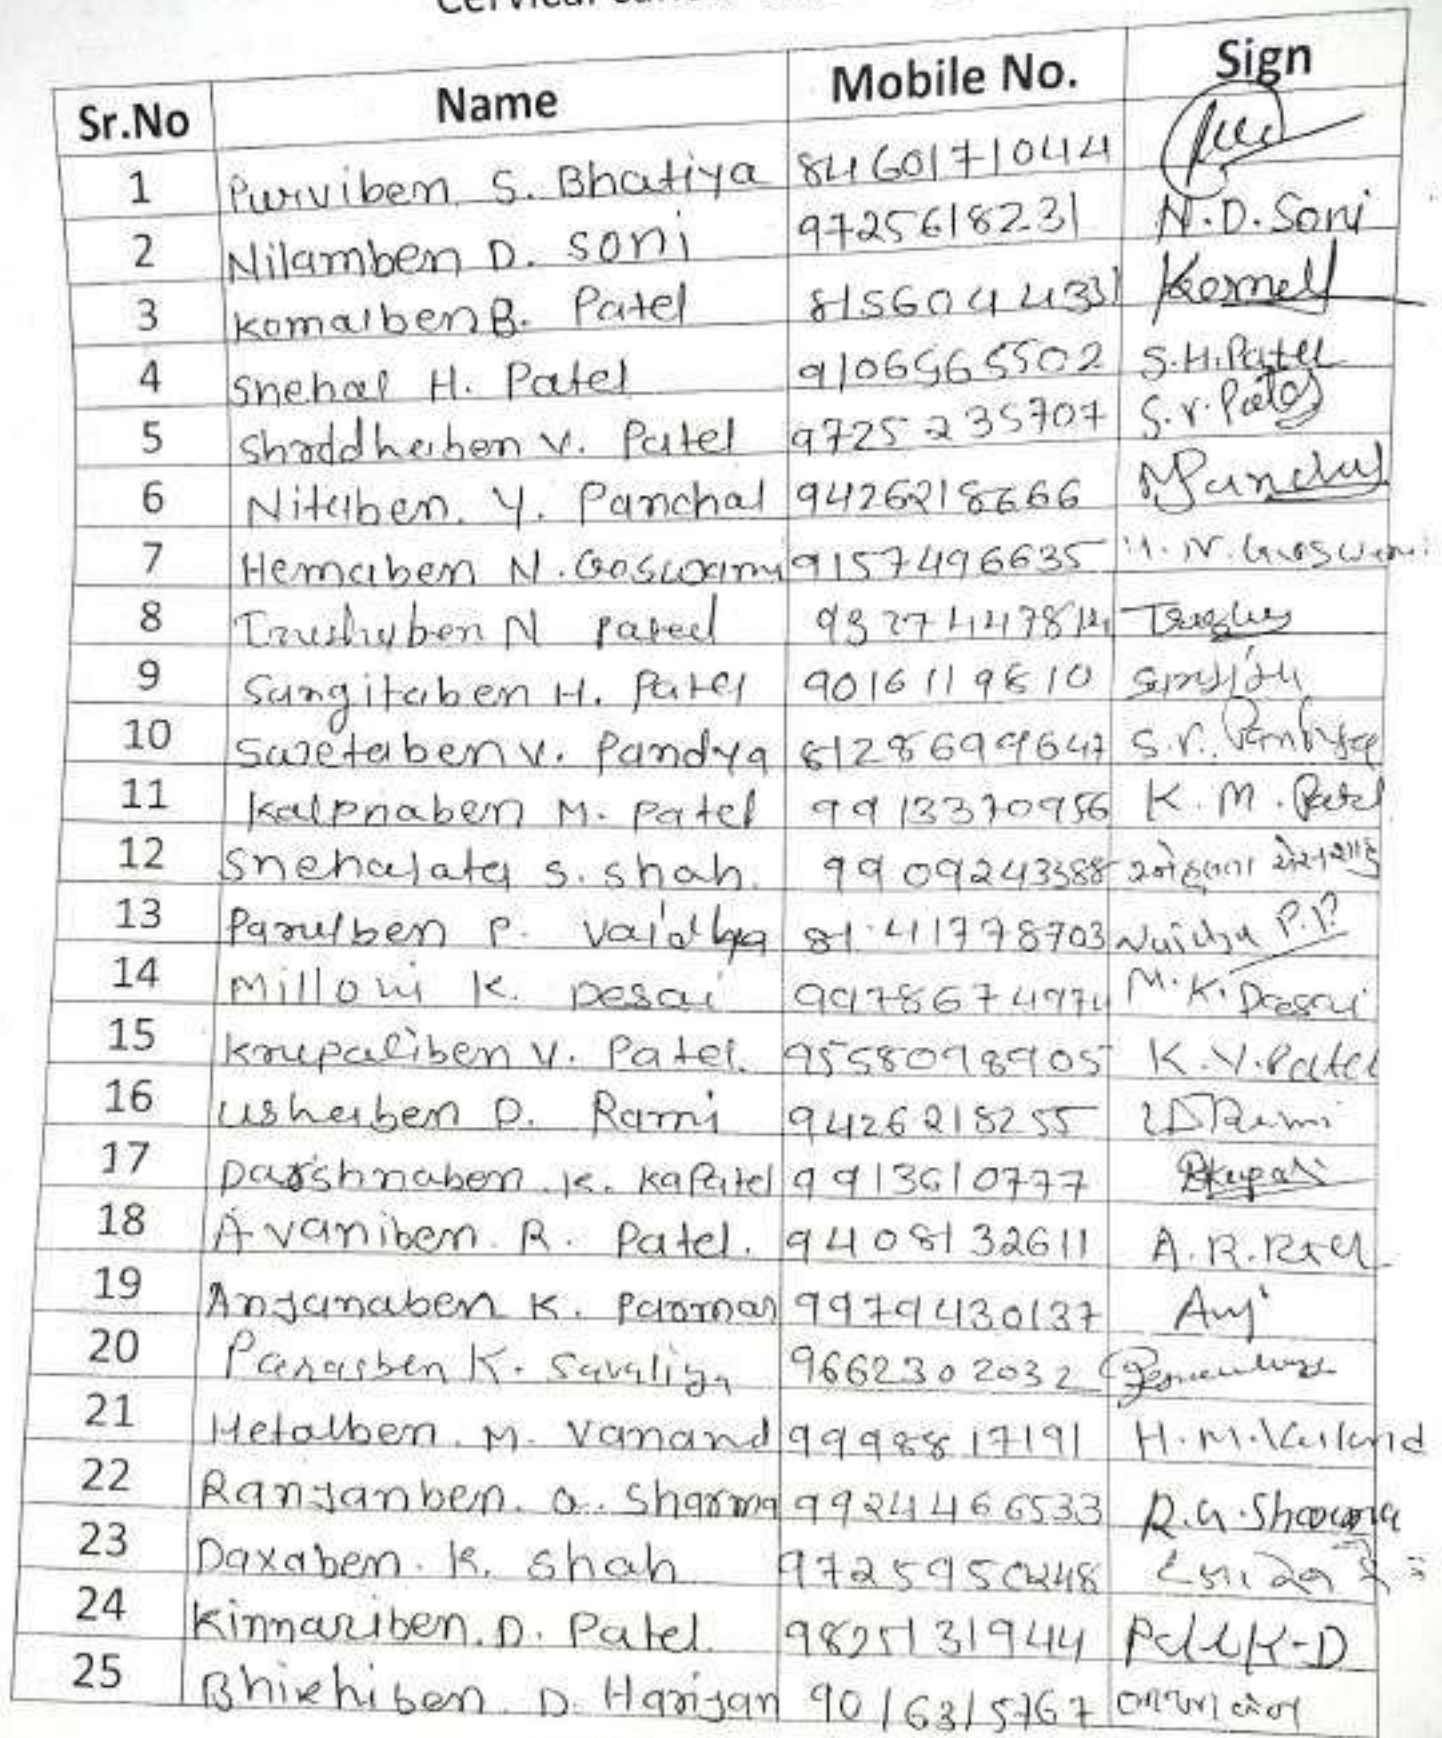 Cervical
Sr.No Name Mobile No. Sign
1 Purviben S. Bhatiya 8460171044
2 Nilamben D. Soni 9725618231 N.D.Soni
3 Komalben B. Patel 8156044331 Komal
4 Snehal H. Patel 9106565502 S.H.Patel
5 Shraddhaben V. Patel 9725235707 S.V.Patel
6 Nitaben. Y. Panchal 9426218666 NPanchal
7 Hemaben N. Goswami 9157496635 H.N.Goswami
8 Trushaben N Patel
9 Sangitaben H. Patel 9016119810
10 Swetaben V. Pandya 8128699647 S.V. Pandya
11 Kalpnaben M. Patel 9913370956 K.M.Patel
12 Snehalata S. Shah. 9909243388
13 Parulben P. Vaidhya 8141778703 Vaidya P.P
14 Milloni K. Desai 9978674974 M.K.Desai
15 Krupaliben V. Patel. 9558098905 K.V.Patel
16 Ushaben D. Rami 9426218255 UDRami
17 Darshnaben. K. Kapatel 9913610777
18 Avaniben. R. Patel. 9408132611 A.R.Patel
19 Anjanaben K. Parmar 9979430137 Anj
20 Parasben K. Savaliya 9662302032
21 Hetalben. M. Vanand 9998817191 H.M.Vanand
22 Ranjanben. G. Sharma 9924466533 R.G.Sharma
23 Daxaben. K. Shah 9725950248
24 Kinnariben. D. Patel. 9825131944 Patel K-D
25 Bhikhiben. D. Harijan 9016315767